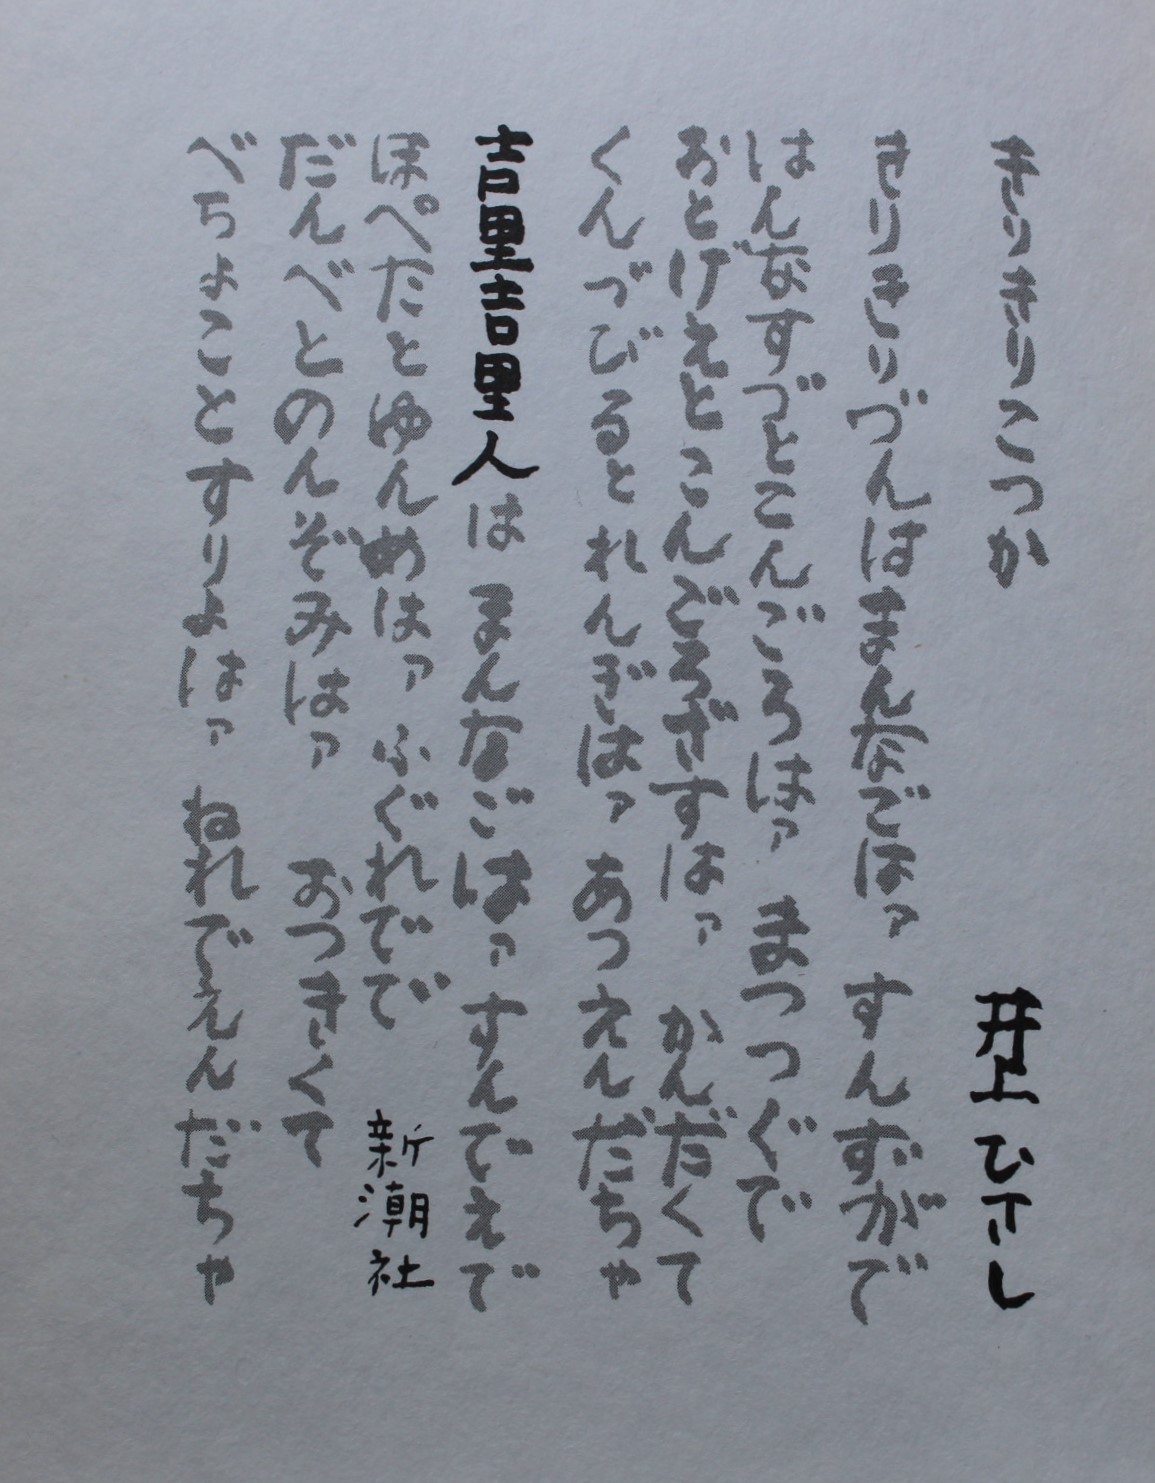 きりきりこつか
井上ひさし
きりきりづんはまんなごはァ すんずがで
はんなすづとこんごろはァ まつつぐで
おとげえとこんごろざすはァ かんだくて
くんづびるとれんぎはァ あつえんだちゃ
吉里吉里人は まんなごはァ すんでえで
ほぺたとゆんめはァ ふぐれでで
新潮社
だんべとのんぞみはァ おつきくて
べちょことすりよはァ ねれでえんだちゃ